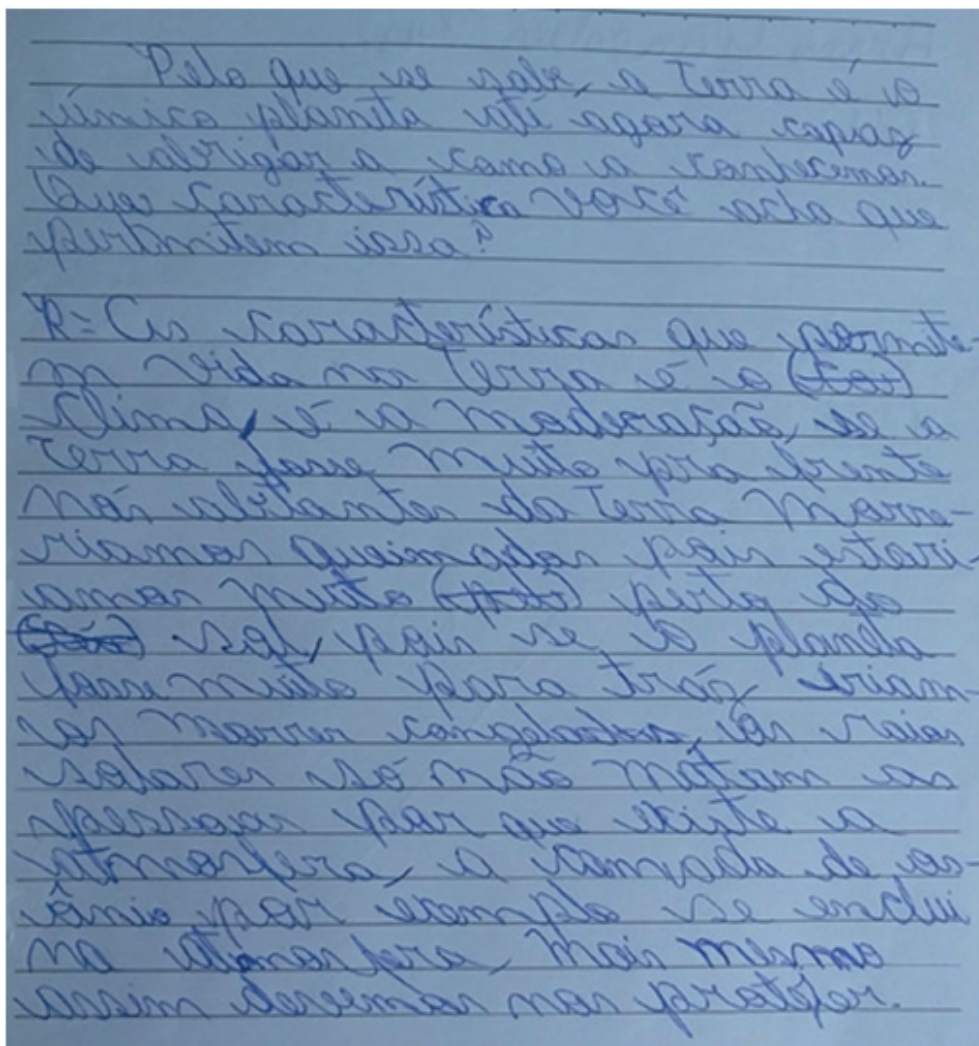 Pelo que se sabe, a Terra é o
único planeta até agora capaz
de abrigar a como a conhecemos.
Que característica você acha que
permitem isso?
R= As características que permite-
m vida na Terra é o (cor)
clima, é a moderação, se a
Terra fosse muito pra frente
nós abitantes da Terra morre-
riamos queimados pois estari-
amos muito perto do
sol, pois se o planeta
fosse muito para tráz, iriam-
os morrer congelados, os raios
solares só não matam as
pessoas por que existe a
atmosfera, a camada de os-
ônio por exemplo se enclui
na atmosfera, mais mesmo
assim devemos nos protejer.